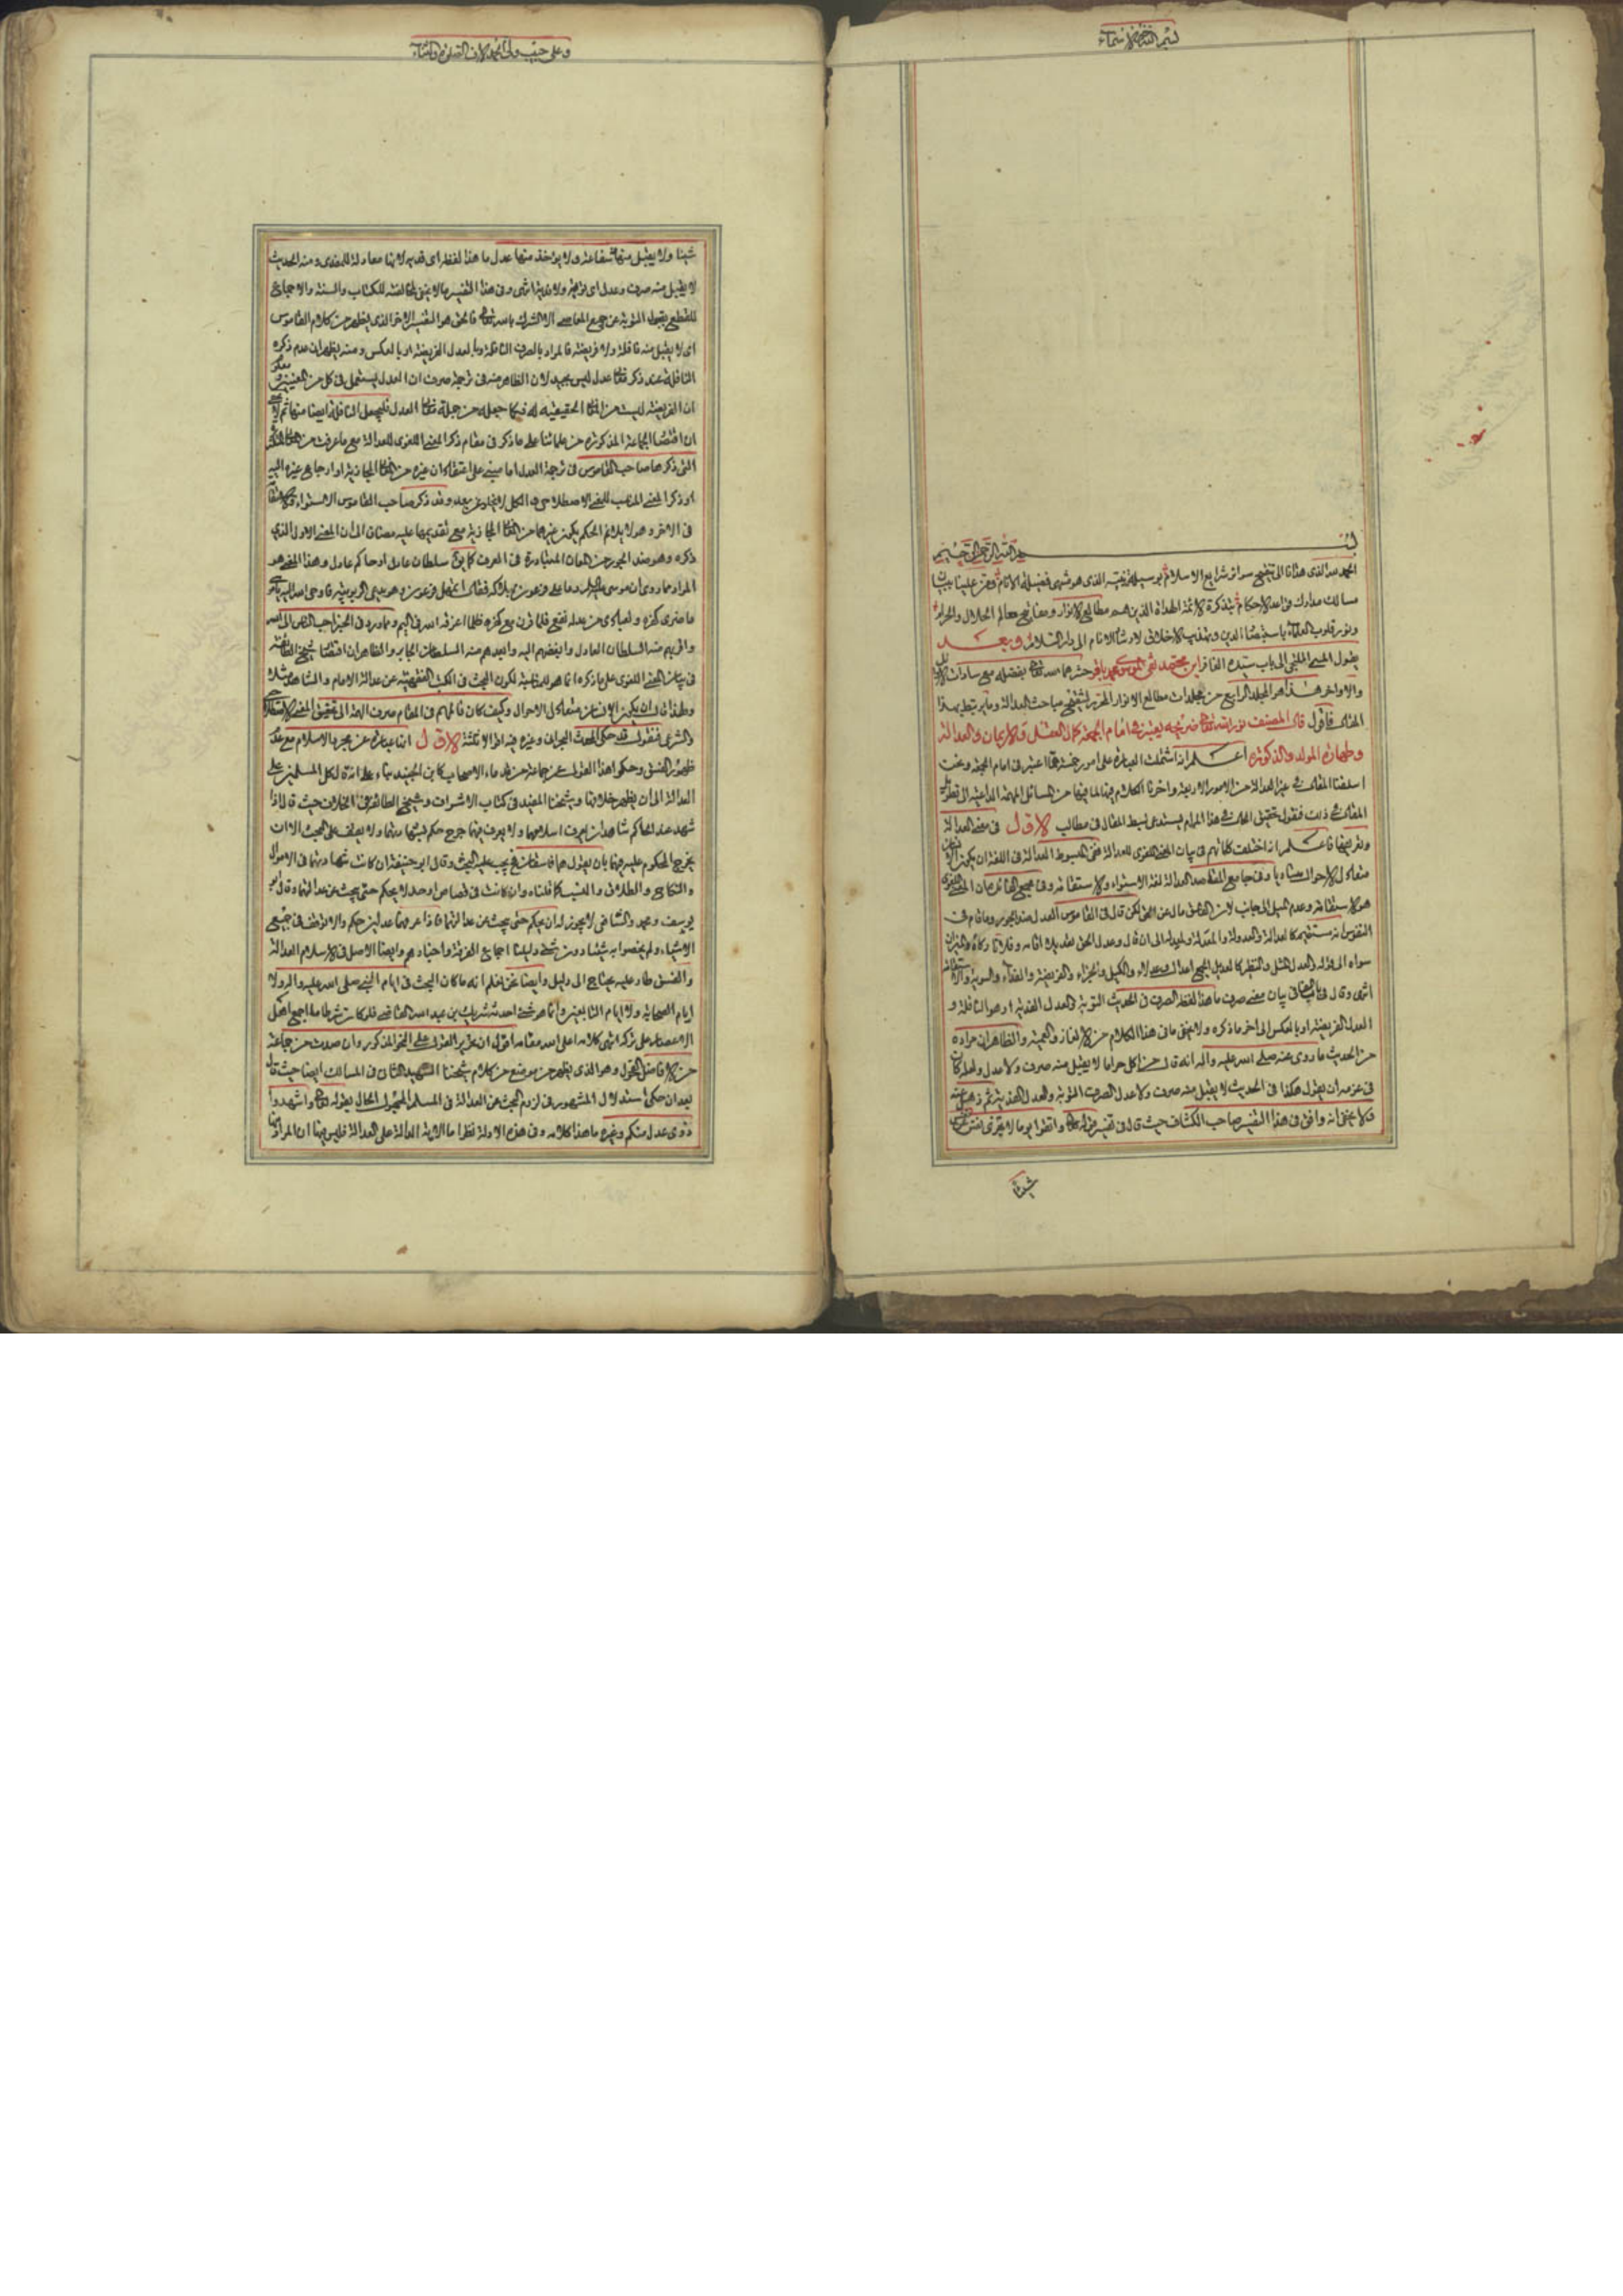 بسم الله خير الاسماء
بسم الله الرحمن الرحيم
الحمد لله الذى هدانا الى تنقيح سرائر شرايع الاسلام بوسيلة نبيه الذى هو منتهى فضيلة الانام وقرر علينا ببيان
مسالك مدارك قواعد الاحكام بتذكرة الائمة الهداة الذين هم مطالع الانوار ومفاتيح معالم الحلال والحرام
ونور قلوب العلماء باستبصار الدين وتهذيب الاخلاق لارشاد الانام الى دار السلام وبعد
يقول المسئ الملتجى الى باب سيده الغافر ابن محمد نقى الموسوى محمد باقر حشرهما الله تعالى بفضله مع سادات الاوائل
والاواخر هذا هو المجلد الرابع من مجلدات مطالع الانوار المحرر لتنقيح مباحث العدالة وما يرتبط بهذا
المقال فاقول قال المصنف نور الله تعالى ضريحه يعتبر فى امام الجمعة كمال العقل والايمان والعدالة
وطهارة المولد والذكورة اعلم انه اشتملت العبارة على امور خمسة مما اعتبر فى امام الجمعة ونحن
اسلفنا المقال فى غير العدالة من الامور الاربعة واخرنا الكلام فيها لما فيها من المسائل المهمة الداعية الى تطويل
المقال فى ذلك فنقول تحقيق الحال فى هذا المرام يستدعى بسط المقال فى مطالب الاول فى معنى العدالة
وتعريفها فاعلم انه اختلفت كلماتهم فى بيان المعنى اللغوى للعدالة ففى المبسوط العدالة فى اللغة ان يكون الانسان
متعادل الاحوال متساويا وفى جامع المقاصد العدالة لغة الاستواء والاستقامة وفى مجمع الفائدة ان المعنى اللغوى
هو الاستقامة وعدم الميل الى جانب لان الفاسق مال عن الحق لكن قال فى القاموس العدل ضد الجور وما قام فى
النفوس انه مستقيم كالعدالة والعدولة والمعدلة والمعدلة الى ان قال وعدل الحكم تعديلا اقامه وفلانا زكاه والميزان
سواه الى قوله العدل المثل والنظير كالعديل الجمع اعدال وعدلاء والكيل والجزاء والفريضة والفداء والسوية والاستقامة
انتهى وقال فى باب الفاء فى بيان معنى صرف ما هذا لفظه الصرف فى الحديث التوبة والعدل الفدية او هو النافلة و
العدل الفريضة او بالعكس الى اخر ما ذكره ولا يخفى ما فى هذا الكلام من الالغاز والتعمية والظاهر ان مراده
من الحديث ما روى عنه صلى الله عليه واله انه قال من اكل حراما لا يقبل منه صرف ولا عدل ولعله كان
فى عزمه ان يقول هكذا فى الحديث لا يقبل منه صرف ولا عدل الصرف التوبة والعدل الفدية ثم ذهل عنه
فلا يخفى انه وافق فى هذا التفسير صاحب الكشاف حيث قال فى تفسير قوله تعالى واتقوا يوما لا تجزى نفس عن نفس
شيئا
وعلى حبيبه ولى الحمد الاف الصلوة والثناء
شيئا ولا يقبل منها شفاعة ولا يؤخذ منها عدل ما هذا لفظه اى فدية لانها معادلة للمفدى ومنه الحديث
لا يقبل منه صرف وعدل اى توبة ولا فدية انتهى وفى هذا التفسير ما لا يخفى لمخالفته للكتاب والسنة والاجماع
للقطع بقبول التوبة عن جميع المعاصى الا الشرك بالله تعالى فالحق هو التفسير الاخر الذى يظهر من كلام القاموس
اى لا يقبل منه نافلة ولا فريضة فالمراد بالصرف النافلة وبالعدل الفريضة او بالعكس ومنه يظهر ان عدم ذكره
النافلة عند ذكر معانى عدل ليس بجيد لان الظاهر منه فى ترجمة صرف ان العدل يستعمل فى كل من المعنيين
ان الفريضة ليست من المعانى الحقيقية له فكما جعله من جملة معانى العدل فليجعل النافلة ايضا منها ثم لا يخفى
ان اقتصار الجماعة المذكورة من علمائنا على ما ذكر فى مقام ذكر المعنى اللغوى للعدالة مع ما عرفت من المعانى
التى ذكرها صاحب القاموس فى ترجمة العدل اما مبنى على اعتقاد ان غيره من المعانى المجازية او ارجاع غيره اليه
او ذكر المعنى المناسب للمعنى الاصطلاحى و الكل لا يخلو عن بعد وقد ذكر صاحب القاموس الاستواء والاستقامة
فى الاخر وهو لا يلائم الحكم بكون غيرهما من المعانى المجازية مع تقديمها عليه مضافا الى ان المعنى الاول الذى
ذكره وهو ضد الجور من المعان المتبادرة فى العرف كما يقال سلطان عادل او حاكم عادل وهذا المعنى هو
واقربهم منه السلطان العادل وابغضهم اليه وابعدهم منه السلطان الجاير والظاهر ان اقتصار شيخ الطائفة
فى بيان المعنى اللغوى على ما ذكره انما هو للمناسبة لكون البحث فى الكتب الفقهية عن عدالة الامام والشاهد مثلا
والشرعى فنقول قد حكى المحدث البحرانى وغيره فيه اقوالا ثلثة الاول انها عبارة عن مجرد الاسلام مع عدم
ظهور الفسق وحكوا هذا القول عن جماعة من قدماء الاصحاب كابن الجنيد بناء على انه قال كل المسلمين على
العدالة الى ان يظهر خلافها وشيخنا المفيد فى كتاب الاشراف وشيخ الطائفة فى الخلاف حيث قال اذا
شهد عند الحاكم شاهدان يعرف اسلامهما ولا يعرف فيهما جرح حكم بشهادتهما ولا يقف على البحث الا ان
يجرح المحكوم عليه فيهما بان يقول هما فاسقان فح يجب عليه البحث وقال ابو حنيفة ان كانت شهادتهما فى الاموال
والنكاح والطلاق والنسب كما قلناه وان كانت فى قصاص او حد لا يحكم حتى يبحث عن عدالتهما وقال ابو
يوسف ومحمد والشافعى لا يجوز له ان يحكم حتى يبحث عن عدالتهما فاذا عرفهما عدلين حكم والا توقف فى جميع
الاشياء ولم يخصوا به شيئا دون شئ دليلنا اجماع الفرقة واخبارهم وايضا الاصل فى الاسلام العدالة
والفسق طار عليه يحتاج الى دليل وايضا نحن نعلم انه ما كان البحث فى ايام النبى صلى الله عليه واله ولا
ايام الصحابة ولا ايام التابعين وانما هو شئ احدثه شريك بن عبد الله القاضى فلو كان شرطا ما اجمع اهل
الاعصار على تركه انتهى كلامه اعلى الله مقامه اقول ان تحرير القول على النحو المذكور وان صدرت من جماعة
من الافاضل الفحول وهو الذى يظهر من موضع من كلام شيخنا الشهيد الثانى فى المسالك ايضا حيث قال
بعد ان حكى استدلال المشهور فى لزوم البحث عن العدالة فى المسلم المجهول الحال بقوله تعالى واشهدوا
ذوى عدل منكم وغيره ما هذا كلامه وفى هذه الادلة نظر اما الاية الدالة على العدالة فليس فيها ان المراد بها